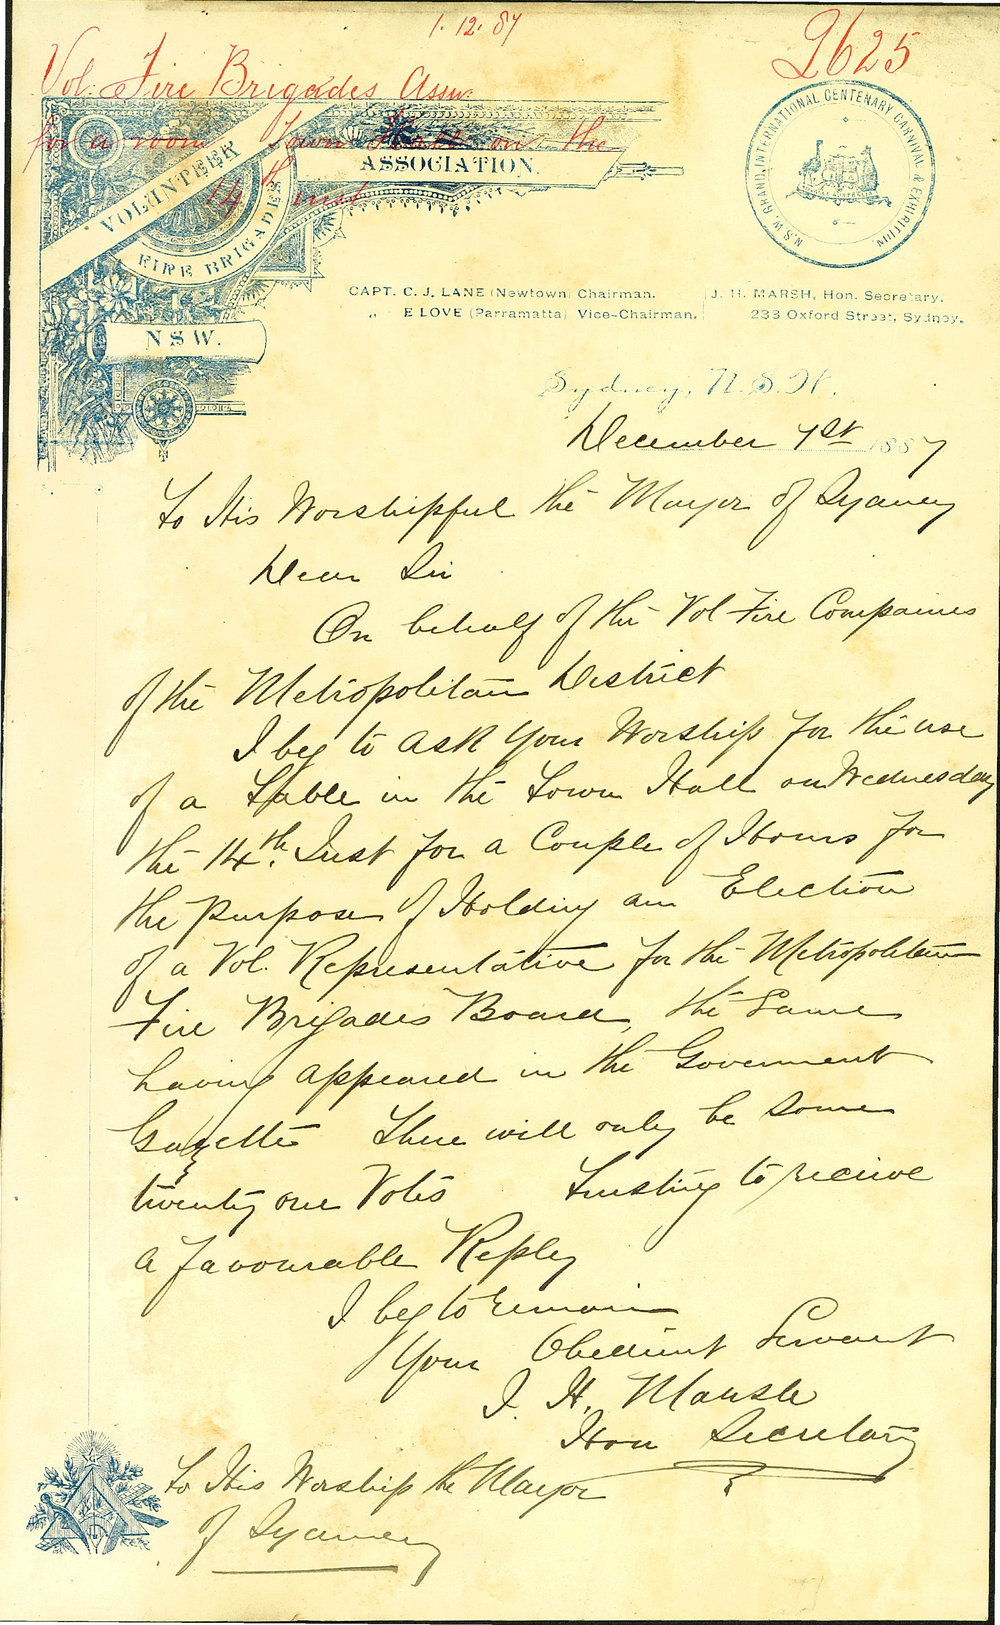 1. 12. 87
2625
Vol: Fire Brigades Assn.
for a room Town Hall on the
14th inst
VOLUNTEER
FIRE BRIGADES
ASSOCIATION.
NSW.
N.S.W. GRAND INTERNATIONAL CENTENARY CARNIVAL & EXHIBITION
CAPT. C. J. LANE (Newtown) Chairman.
" E LOVE (Parramatta) Vice-Chairman.
J. H. MARSH, Hon. Secretary.
233 Oxford Street, Sydney.
Sydney, N.S.W.
December 1st 1887
To His Worshipful the Mayor of Sydney
Dear Sir
On behalf of the Vol Fire Compaines
of the Metropolitan District
I beg to ask Your Worship for the use
of a Table in the Town Hall on Wednesday
the 14th. Inst for a Couple of Hours for
the Purpose of Holding an Election
of a Vol. Representative for the Metropolitan
Fire Brigades Board, the Same
having appeared in the Goverment
Gazette There will only be some
twenty one Votes Trusting to receive
a favourable Reply
I beg to remain
Your Obedient Servant
J. H. Marsh
Hon Secretary
To His Worship the Mayor
of Sydney